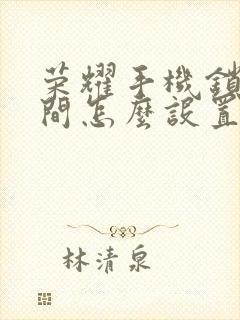 荣耀手機鎖
間怎麼設置
林清泉